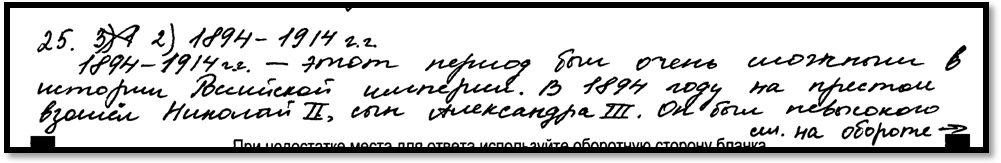 25. 2) 1894 – 1914 г.г.
1894 – 1914 г.г. – этот период был очень сложным в
истории Российской империи. В 1894 году на престол
взошёл Николай II, сын Александра III. Он был невысокого
см. на обороте →
При недостатке места для ответа используйте оборотную сторону бланка